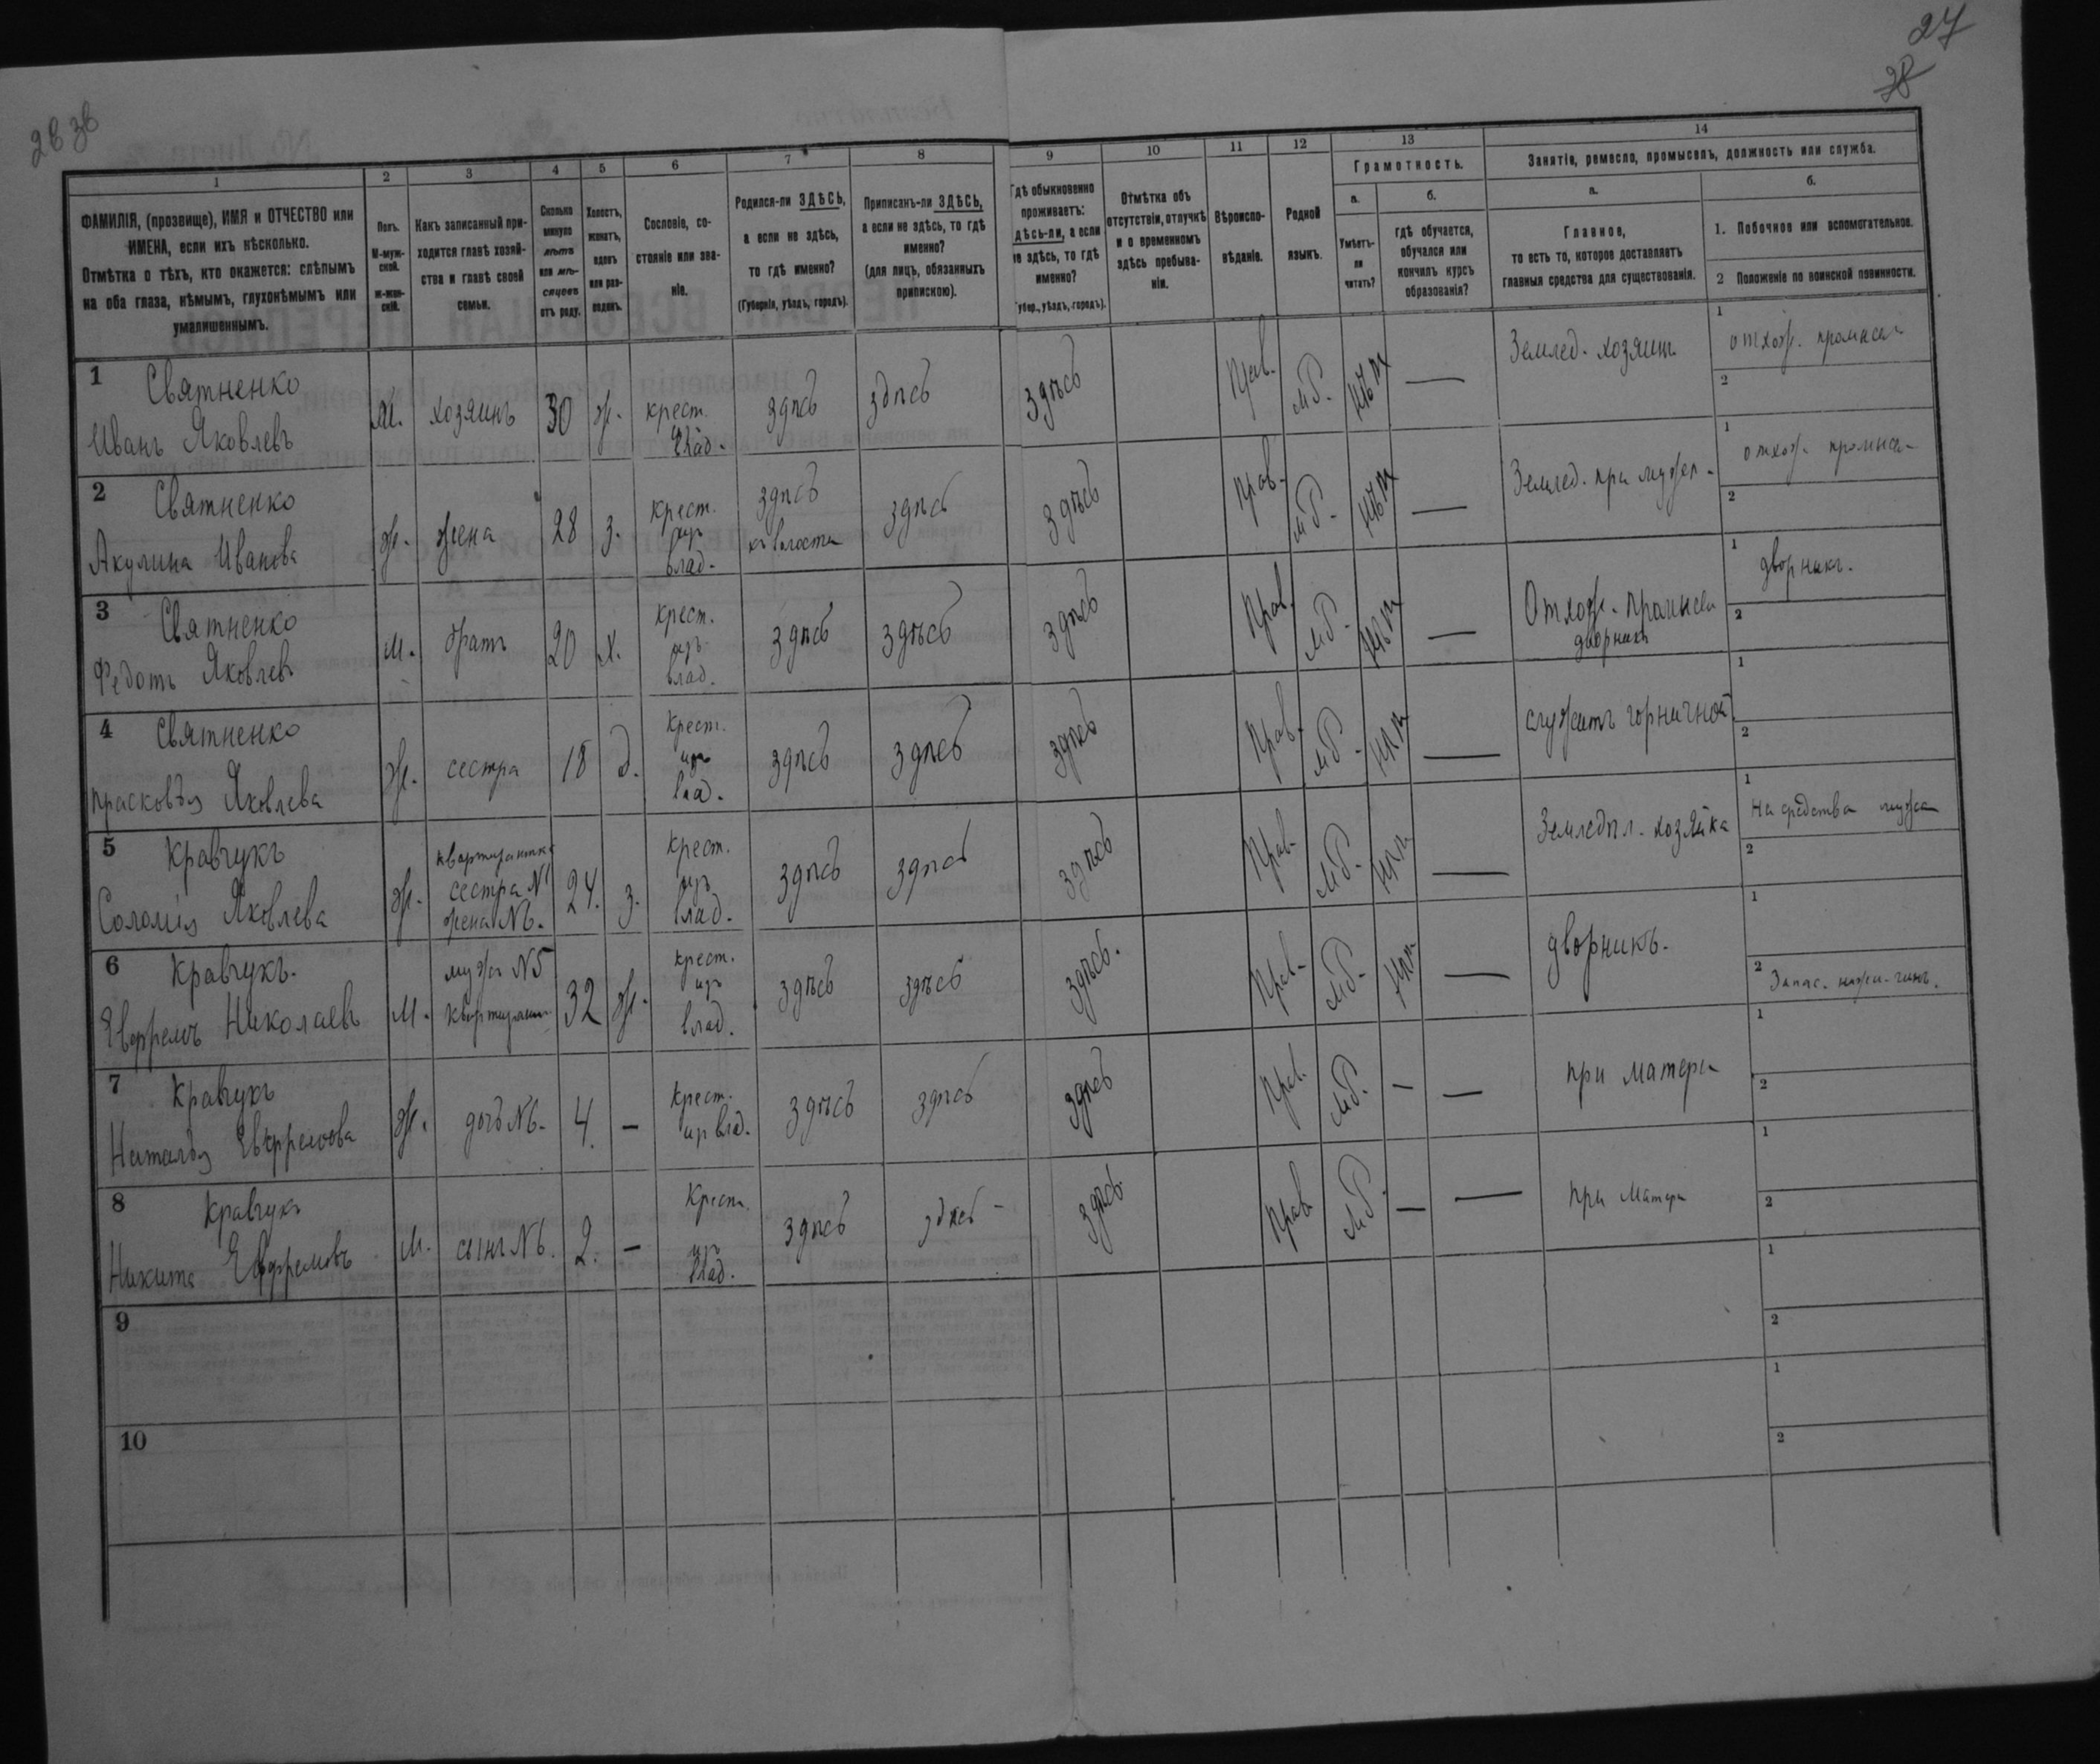 27
28
26 зв
1 2 3 4 5 6 7 8 9 10 11 12 13 14
ФАМИЛІЯ, (прозвище), ИМЯ и ОТЧЕСТВО или ИМЕНА, если ихъ нѣсколько.
Отмѣтка о тѣхъ, кто окажется: слѣпымъ на оба глаза, нѣмымъ, глухонѣмымъ или умалишеннымъ.
Полъ. М-мужской. ж-женскій.
Какъ записанный приходится главѣ хозяйства и главѣ своей семьи.
Сколько минуло лѣтъ или мѣсяцевъ отъ роду.
Холостъ, женатъ, вдовъ или разведенъ.
Сословіе, состояніе или званіе.
Родился-ли ЗДѢСЬ, а если не здѣсь, то гдѣ именно? (Губернія, уѣздъ, городъ).
Приписанъ-ли ЗДѢСЬ, а если не здѣсь, то гдѣ именно? (для лицъ, обязанныхъ припискою).
Гдѣ обыкновенно проживаетъ: здѣсь-ли, а если не здѣсь, то гдѣ именно? (Губер., уѣздъ, городъ).
Отмѣтка объ отсутствіи, отлучкѣ и о временномъ здѣсь пребываніи.
Вѣроисповѣданіе.
Родной языкъ.
Грамотность.
а. Умѣетъ-ли читать?
б. гдѣ обучается, обучался или кончилъ курсъ образованія?
Занятіе, ремесло, промыселъ, должность или служба.
а. Главное, то есть то, которое доставляетъ главныя средства для существованія.
б.
1. Побочное или вспомогательное.
2 Положеніе по воинской повинности.
1 Святненко Иванъ Яковлевъ М. хозяинъ 30 ж. крест. влад. здѣсь здѣсь здѣсь Прав. мр. нѣтъ — Землед. хозяинъ 1 отхож. промысел 2
2 Святненко Акулина Иванова ж. жена 28 з. Крест. изъ влад. здѣсь въ волости здѣсь здѣсь Прав. мр. нѣтъ — Землед. при мужѣ. 1 отхож. промысел 2
3 Святненко Федотъ Яковлевъ м. братъ 20 х. крест. изъ влад. здѣсь здѣсь здѣсь Прав. мр. нѣтъ — Отхож. промысел дворникъ 1 дворникъ. 2
4 Святненко Прасковья Яковлева ж. сестра 18 д. крест. изъ влад. здѣсь здѣсь здѣсь Прав. мр. нѣтъ — служитъ горничной 1 2
5 Кравчукъ Соломія Яковлева ж. квартирантка сестра №1 жена №6. 24. з. крест. изъ влад. здѣсь здѣсь здѣсь Прав. мр. нѣтъ — Земледѣл. хозяйка 1 На средства мужа 2
6 Кравчукъ. Евфремъ Николаевъ м. мужъ №5 квартирант. 32 ж. крест. изъ влад. здѣсь здѣсь здѣсь. Прав. мр. нѣтъ — дворникъ. 1 2 Запас. нижн. чинъ.
7 Кравчукъ Наталья Евфремова ж. дочь №6. 4. — Крест. из влад. здѣсь здѣсь здѣсь Прав. мр. — — при матери 1 2
8 Кравчукъ Никита Евфремовъ м. сынъ №6. 2. — Крест. изъ влад. здѣсь здѣсь — здѣсь Прав. мр. — — при матери 1 2
9 1 2
10 1 2